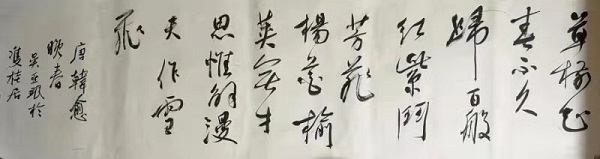 草樹知
春不久
歸百般
红紫鬥
芳菲
楊花榆
莢无才
思惟解漫
天作雪
飛
唐韓愈
晚春
吴於
雙桂居